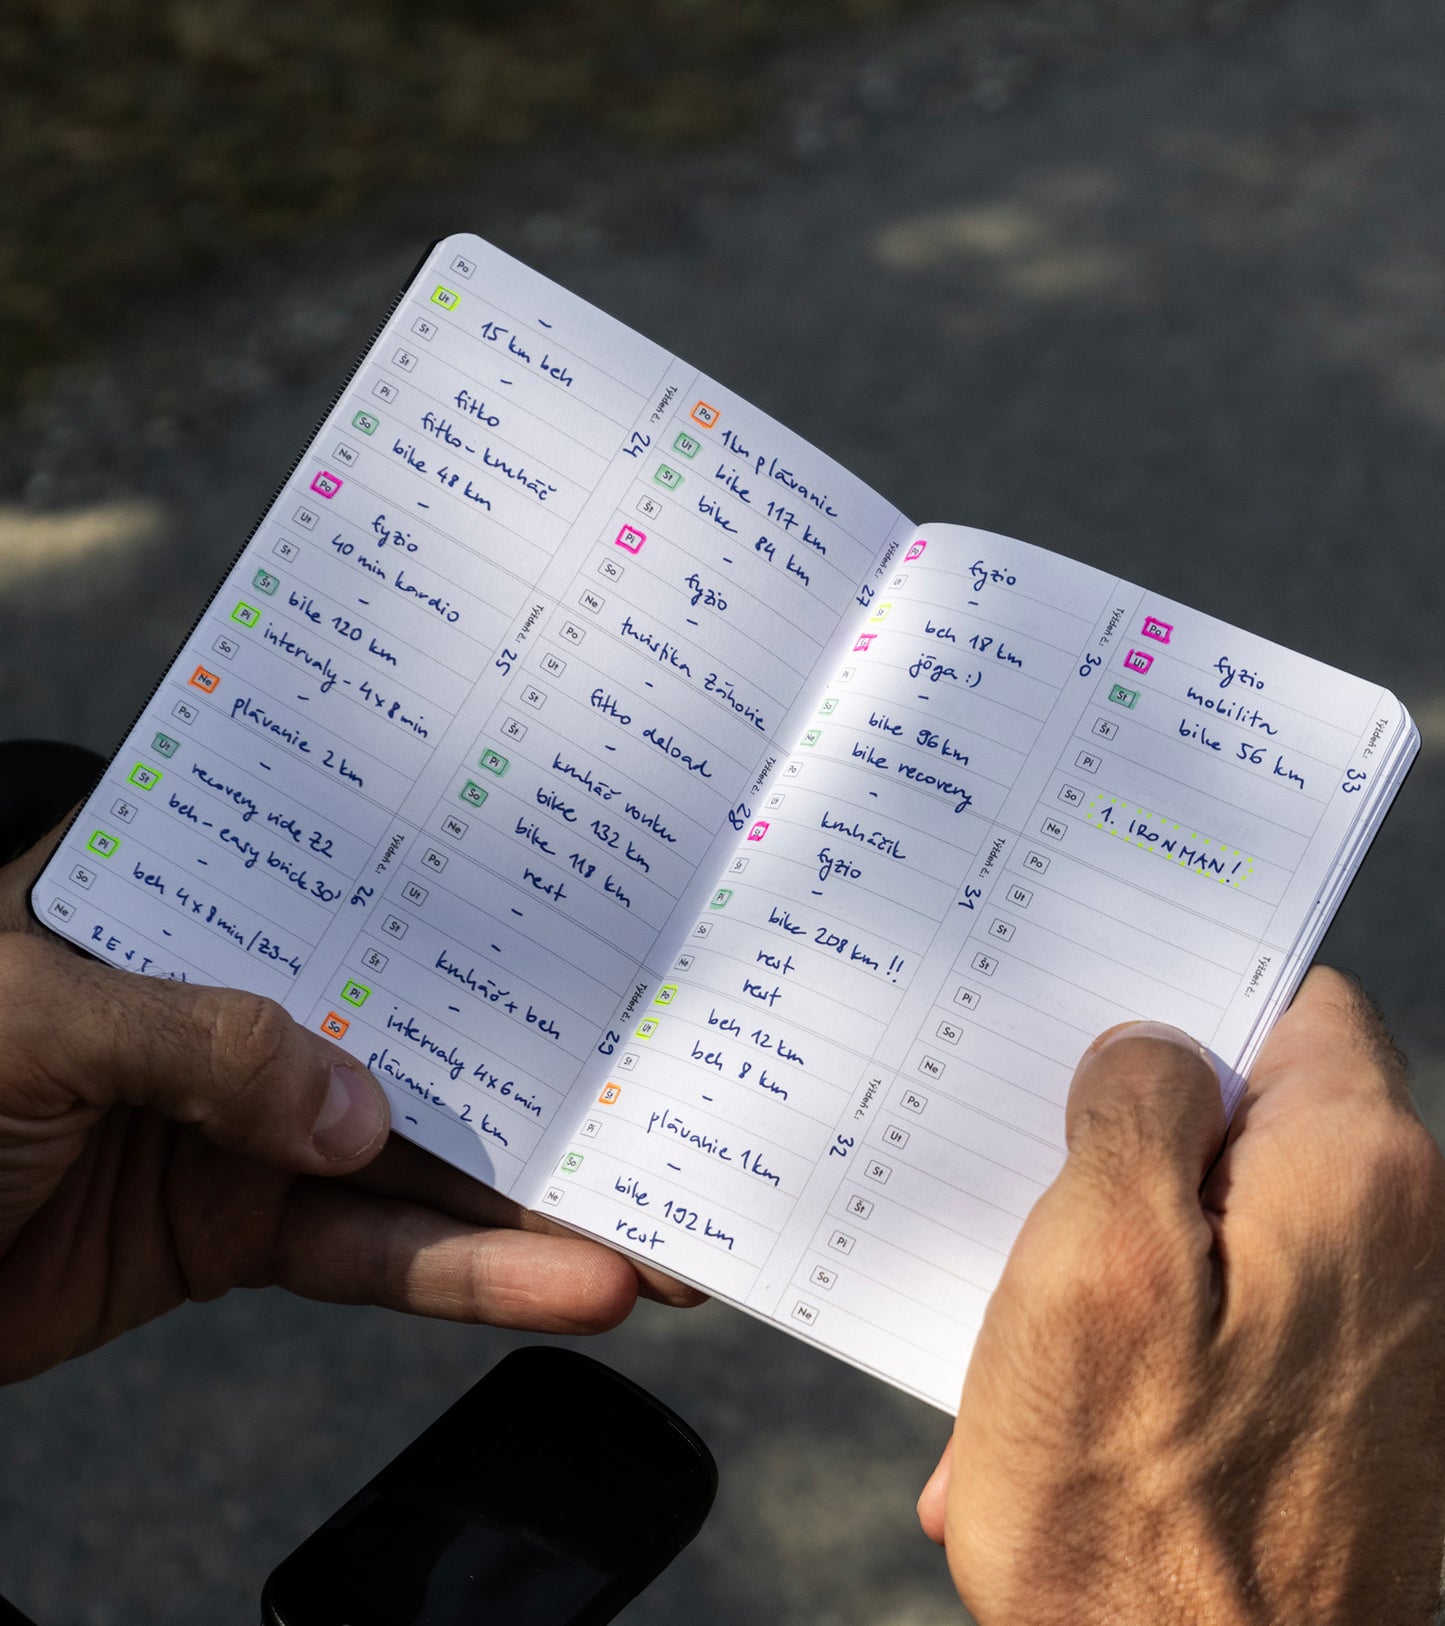 Týždeň č.: 24
Po –
Ut 15 km beh
St –
Št fitko
Pi fitko - kruháč
So bike 48 km
Ne –
Týždeň č.: 25
Po fyzio
Ut 40 min kardio
St –
Št bike 120 km
Pi intervaly - 4x8 min
So –
Ne plávanie 2 km
Týždeň č.: 26
Po –
Ut recovery ride Z2
St beh - easy brick 30'
Št –
Pi beh 4x8min/Z3-4
So –
Ne REST
Týždeň č.: 27
Po 1km plávanie
Ut bike 117 km
St bike 84 km
Št –
Pi fyzio
So –
Ne turistika Záhorie
Týždeň č.: 28
Po –
Ut fitko deload
St –
Št kruháč vonku
Pi bike 132 km
So bike 118 km
Ne rest
Týždeň č.: 29
Po –
Ut –
St kruháč + beh
Št –
Pi intervaly 4x6 min
So plávanie 2 km
–
Týždeň č.: 30
Po fyzio
Ut –
St beh 18 km
Št jóga :)
Pi –
So bike 96km
Ne bike recovery
Týždeň č.: 31
Po –
Ut kruháčik
St fyzio
Št –
Pi bike 208 km !!
So rest
Ne rest
Týždeň č.: 32
Po beh 12 km
Ut beh 8 km
St –
Št plávanie 1km
Pi –
So bike 192 km
Ne rest
Týždeň č.: 33
Po fyzio
Ut mobilita
St bike 56 km
Št
Pi
So 1. IRONMAN!
Ne
Týždeň č.:
Po
Ut
St
Št
Pi
So
Ne
Po
Ut
St
Št
Pi
So
Ne